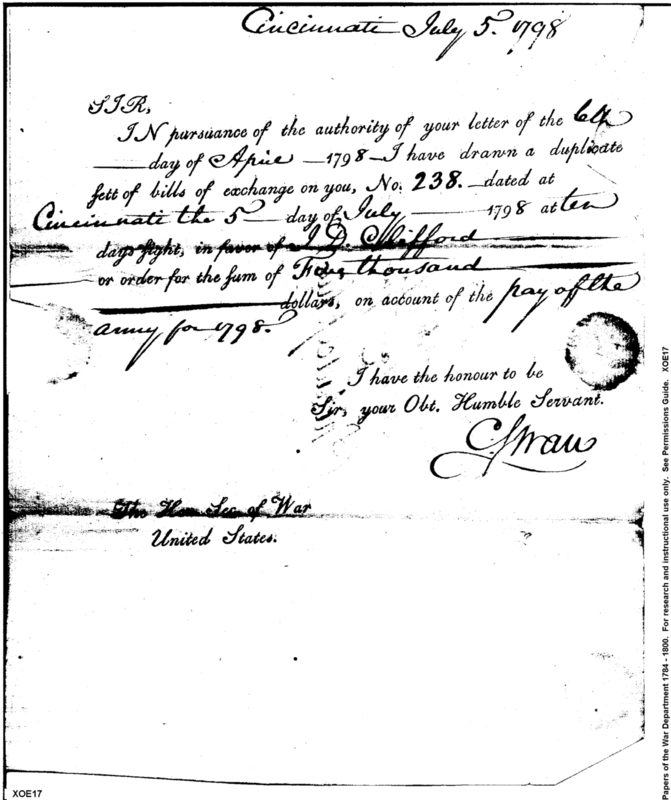 Cincinnati July 5. 1798
SIR,
IN pursuance of the authority of your letter of the 6th
day of April 1798 I have drawn a duplicate
sett of bills of exchange on you, No. 238. dated at
Cincinnati the 5 day of July 1798 at ten
days sight, in favor of J. D. Clifford
or order for the sum of thousand
dollars, on account of the pay of the
army for 1798.
I have the honour to be
Sir, your Obt. Humble Servant.
C. Swan
The Hon Sec of War
United States.
Papers of the War Department 1784 - 1800. For research and instructional use only. See Permissions Guide. XOE17
XOE17